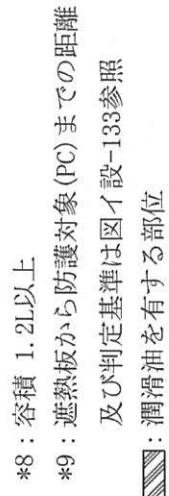 *8：容積 1.2L以上
*9：遮熱板から防護対象(PC)までの距離
及び判定基準は図イ設-133参照
：潤滑油を有する部位